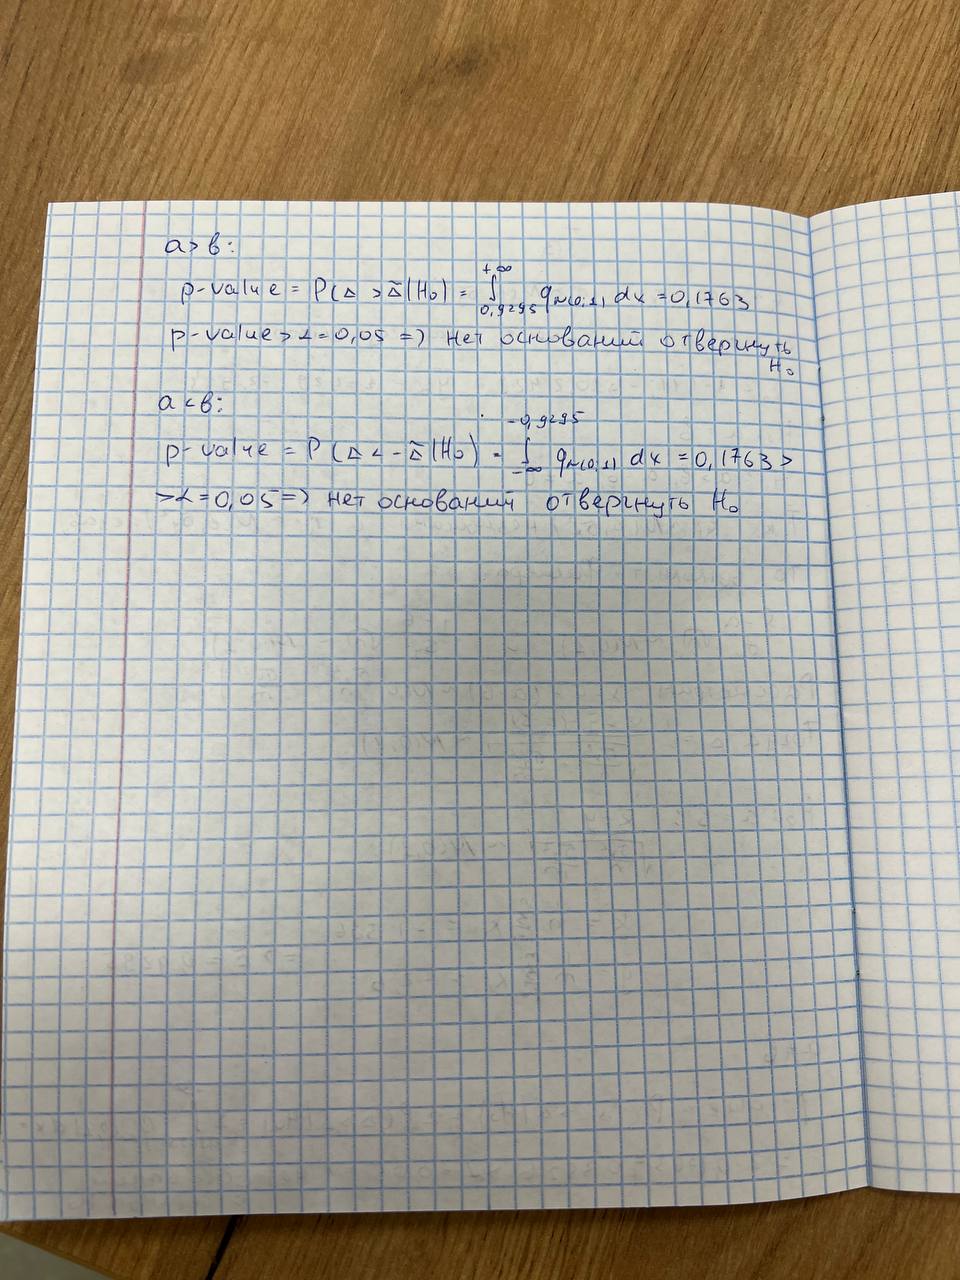 a > b:
p-value = P(Δ > Δ̃ | H₀) = ∫_{0,9295}^{+∞} q_{N(0,1)} dx = 0,1763
p-value > α = 0,05 => нет оснований отвергнуть
H₀
a < b:
p-value = P(Δ < -Δ̃ | H₀) = ∫_{-∞}^{-0,9295} q_{N(0,1)} dx = 0,1763 >
> α = 0,05 => нет оснований отвергнуть H₀